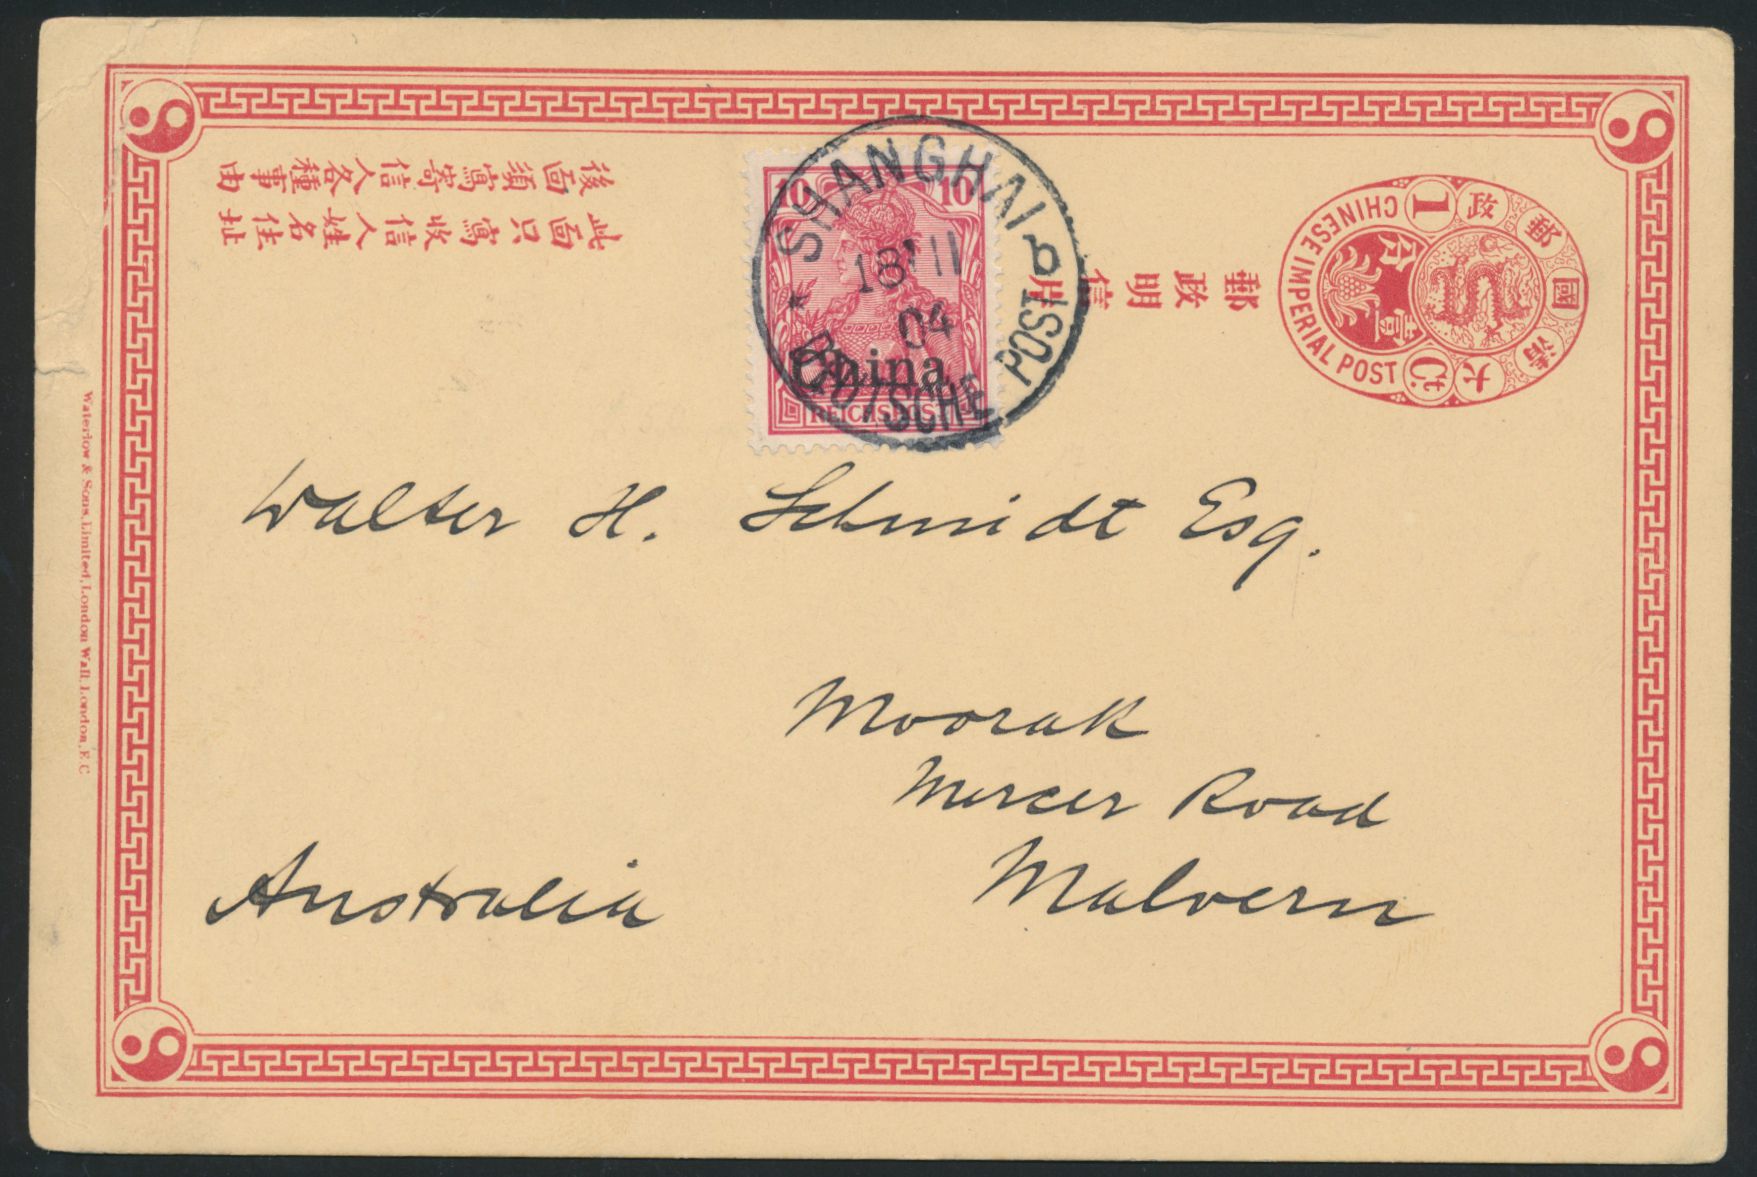 後面須寫寄信人各種事由
此面只寫收信人姓名住址
郵政明信片
大清國郵政
CHINESE IMPERIAL POST
1
Ct.
10 10
China
REICHSPOST
SHANGHAI
04
DEUTSCHE POST
Walter H. Schmidt Esq.
Moorak
Mercer Road
Malvern
Australia
Waterlow & Sons, Limited, London Wall, London, E.C.